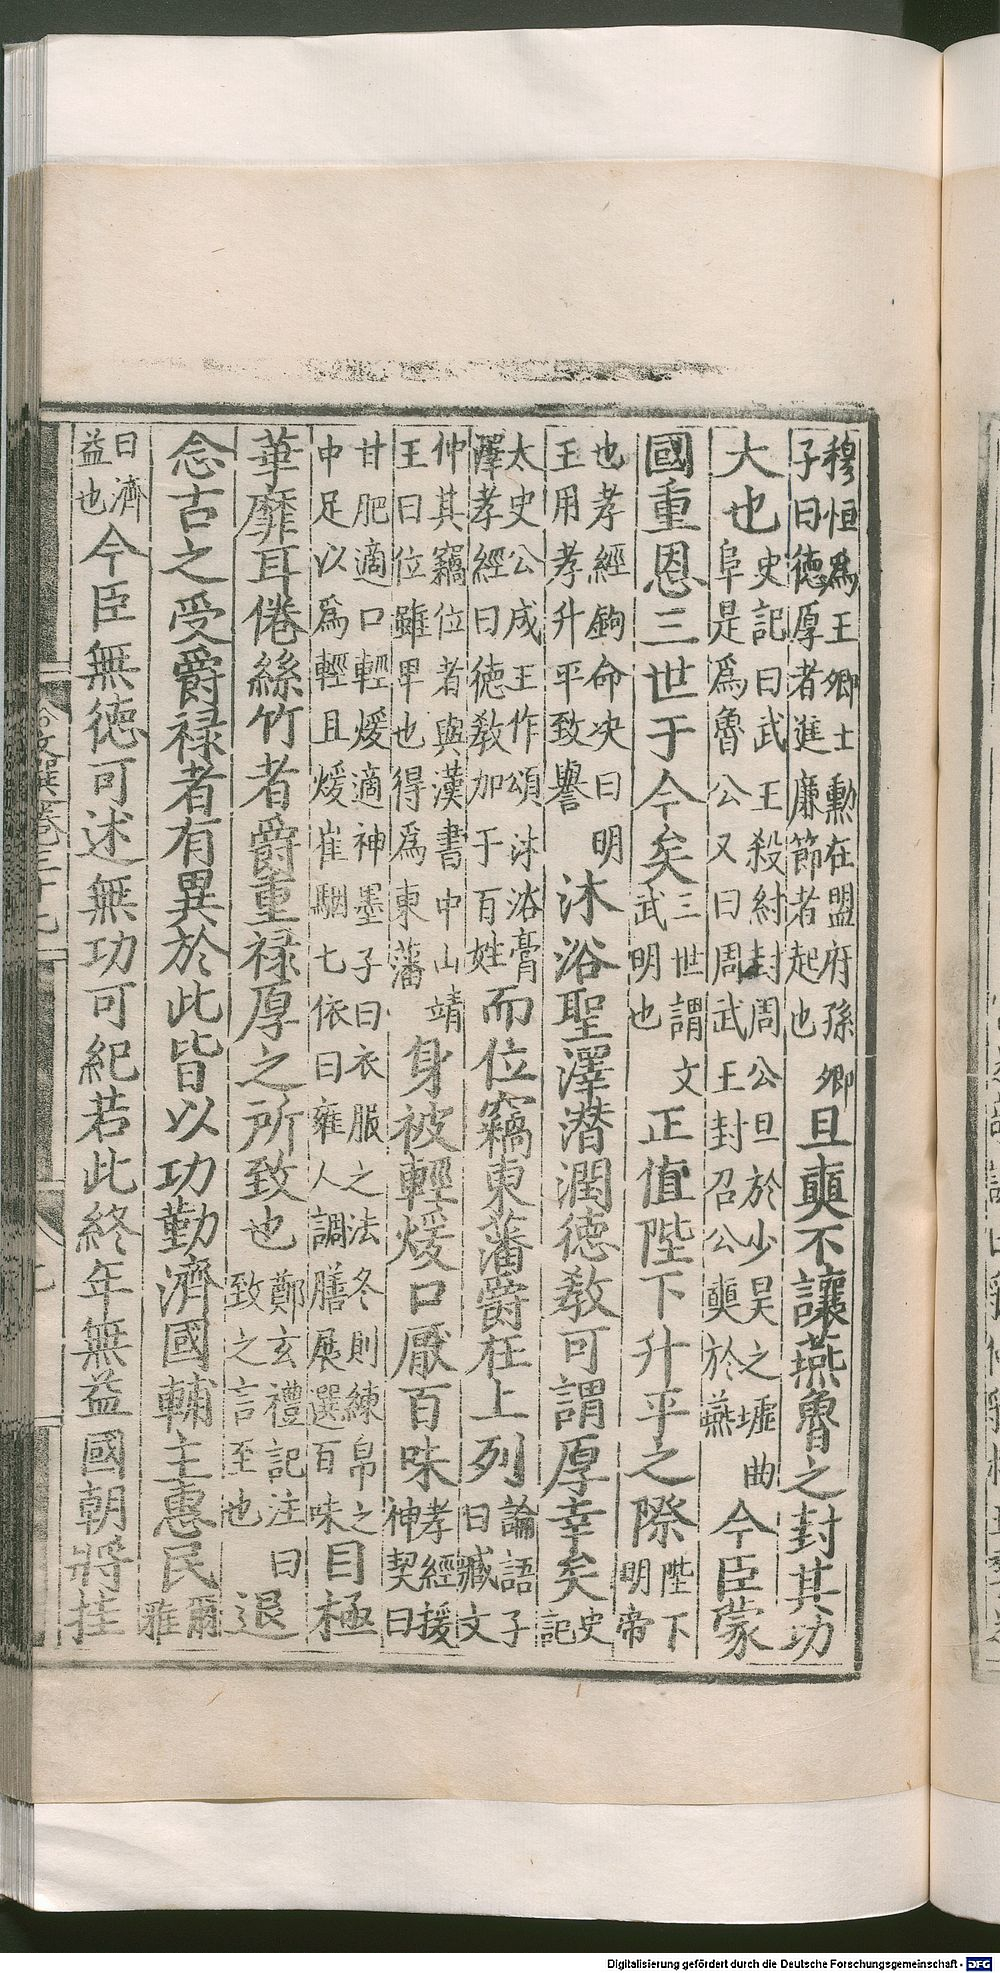 穆恒爲王卿士勳在盟府孫卿
子曰德厚者進廉節者起也
旦奭不讓燕魯之封其功
大也
史記曰武王殺紂封周公旦於少昊之墟曲
阜是爲魯公又曰周武王封召公奭於燕
今臣蒙
國重恩三世于今矣
三世謂文
武明也
正值陛下升平之際
陛下
明帝
也孝經鉤命决曰明
王用孝升平致譽
沐浴聖澤潜潤德教可謂厚幸矣
史
記
太史公成王作頌沐浴膏
澤孝經曰德教加于百姓
而位竊東藩爵在上列
論語子
曰臧文
仲其竊位者與漢書中山靖
王曰位雖卑也得爲東藩
身被輕煖口厭百味
孝經援
神契曰
甘肥適口輕煖適神墨子曰衣服之法冬則練帛之
中足以爲輕且煖崔駰七依曰雍人調膳展選百味
目極
華靡耳倦絲竹者爵重禄厚之所致也
鄭玄禮記注曰
致之言至也
退
念古之受爵禄者有異於此皆以功勤濟國輔主惠民
爾
雅
曰濟
益也
今臣無德可述無功可紀若此終年無益國朝將挂
文選卷三十七
Digitalisierung gefördert durch die Deutsche Forschungsgemeinschaft - DFG